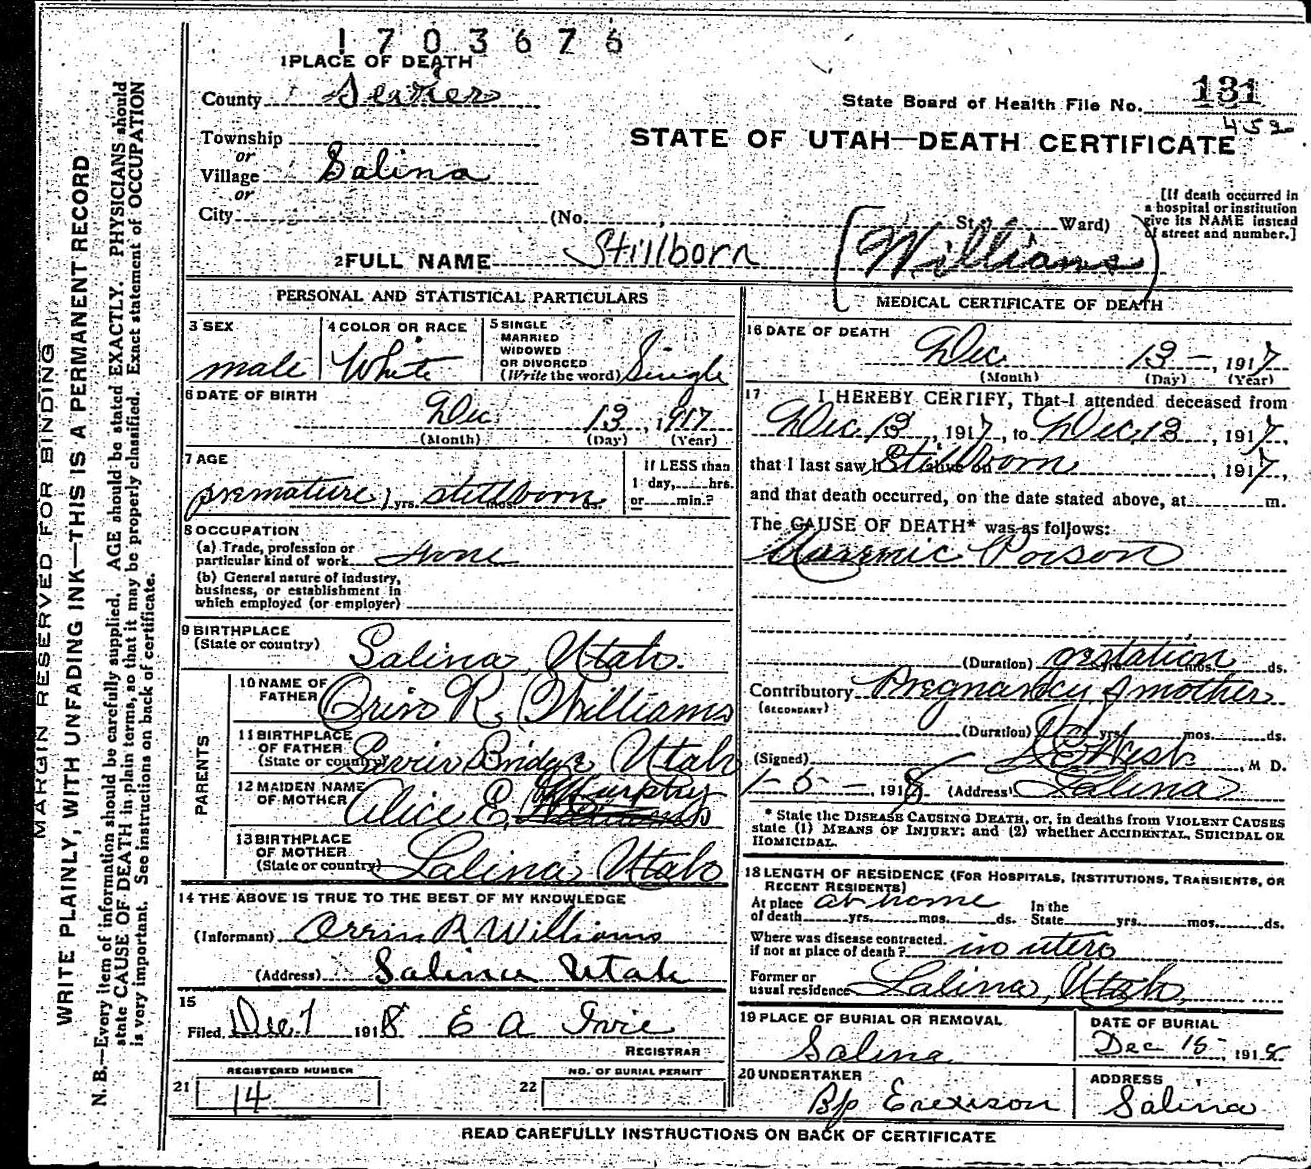 1703676
1 PLACE OF DEATH
County Sevier
State Board of Health File No. 131
452
Township
or
Village Salina
or
City (No. , St., Ward)
STATE OF UTAH—DEATH CERTIFICATE
[If death occurred in a hospital or institution give its NAME instead of street and number.]
2 FULL NAME Stillborn (Williams)
PERSONAL AND STATISTICAL PARTICULARS
3 SEX male
4 COLOR OR RACE White
5 SINGLE MARRIED WIDOWED OR DIVORCED (Write the word) Single
6 DATE OF BIRTH Dec 13, 1917
(Month) (Day) (Year)
7 AGE premature yrs. stillborn mos. ds.
If LESS than 1 day, hrs. or min.?
8 OCCUPATION
(a) Trade, profession or particular kind of work None
(b) General nature of industry, business, or establishment in which employed (or employer)
9 BIRTHPLACE (State or country) Salina, Utah.
PARENTS
10 NAME OF FATHER Orin R. Williams
11 BIRTHPLACE OF FATHER (State or country) Sevier Bridge Utah
12 MAIDEN NAME OF MOTHER Alice E. Murphy
13 BIRTHPLACE OF MOTHER (State or country) Salina Utah
14 THE ABOVE IS TRUE TO THE BEST OF MY KNOWLEDGE
(Informant) Orrin R Williams
(Address) Salina Utah
15
Filed 1918 E A
REGISTRAR
REGISTERED NUMBER
21 14
NO. OF BURIAL PERMIT
22
MEDICAL CERTIFICATE OF DEATH
16 DATE OF DEATH
Dec 13 – , 1917
(Month) (Day) (Year)
17 I HEREBY CERTIFY, That I attended deceased from
Dec 13, 1917, to Dec 13, 1917,
that I last saw h alive on Stillborn, 1917,
and that death occurred, on the date stated above, at m.
The CAUSE OF DEATH* was as follows:
Uraemic Poison
(Duration) gestation yrs. mos. ds.
Contributory Pregnancy of mother
(SECONDARY)
(Duration) yrs. mos. ds.
(Signed) West, M D.
1-5-, 1918 (Address) Salina
* State the DISEASE CAUSING DEATH, or, in deaths from VIOLENT CAUSES
state (1) MEANS OF INJURY; and (2) whether ACCIDENTAL, SUICIDAL OR
HOMICIDAL.
18 LENGTH OF RESIDENCE (FOR HOSPITALS, INSTITUTIONS, TRANSIENTS, OR
RECENT RESIDENTS)
At place of death at home yrs. mos. ds. In the State yrs. mos. ds.
Where was disease contracted, if not at place of death? in utero
Former or usual residence Salina, Utah,
19 PLACE OF BURIAL OR REMOVAL Salina
DATE OF BURIAL Dec 15, 191
20 UNDERTAKER Bp
ADDRESS Salina
READ CAREFULLY INSTRUCTIONS ON BACK OF CERTIFICATE
MARGIN RESERVED FOR BINDING
WRITE PLAINLY, WITH UNFADING INK—THIS IS A PERMANENT RECORD
N. B.—Every item of information should be carefully supplied. AGE should be stated EXACTLY. PHYSICIANS should
state CAUSE OF DEATH in plain terms, so that it may be properly classified. Exact statement of OCCUPATION
is very important. See instructions on back of certificate.